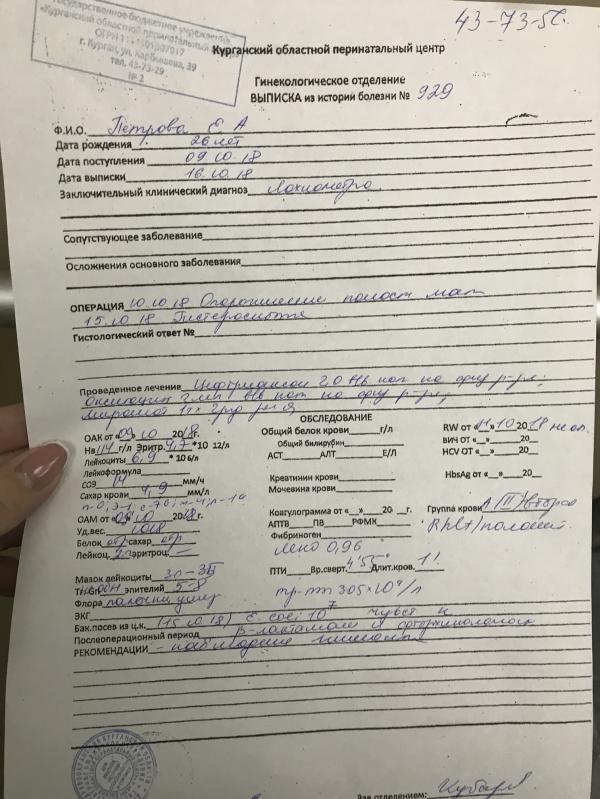 43-73-52.
Государственное бюджетное учреждение
«Курганский областной перинатальный центр»
г. Курган, ул. Карбышева, 39
тел. 43-73-29
№ 2
Курганский областной перинатальный центр
Гинекологическое отделение
ВЫПИСКА из истории болезни № 929
Ф.И.О. Петрова Е. А
Дата рождения 26 лет
Дата поступления 09 10.18
Дата выписки 16.10.18
Заключительный клинический диагноз Лохиометра
Сопутствующее заболевание
Осложнения основного заболевания
ОПЕРАЦИЯ 10.10 18 Опорожнение полости мат
15.10 18 Гистероскопия
Гистологический ответ №
Проведенное лечение Цефтриаксон 2,0 в/в кап на физ р-ре;
Окситоцин 2 мл в/в кап на физ р-ре;
1 т х 2 р/д
ОБСЛЕДОВАНИЕ
ОАК от «09» 10 2018г. Общий белок крови г/л RW от «11» 10 2018
Нв 114 г/л Эритр. 4,7 *10 12/л Общий билирубин ВИЧ от «__»____20__
Лейкоциты 6,9 * 10 6/л АСТ АЛТ Е/Л HCV ОТ «__»____20__
Лейкоформула
СОЭ 14 мм/ч Креатинин крови HbsAg от «__»____20__
Сахар крови 4,9 мм/л Мочевина крови
ОАМ от «09» 10 2018г. Коагулограмма от «__»____20 __г. Группа крови А (II) вторая
Уд.вес. 1018 АПТВ ПВ РФМК Rh(+) полож
Белок отр сахар отр Фибриноген
Лейкоц. эритроц: –
0,96
ПТИ Вр.сверт. 4'55" Длит.кров. 1'
Мазок лейкоциты 30-35
эпителий 5-8 тр-ты 305×10⁹/л
Флора палочки
ЭКГ
Бак.посев из ц.к. (15.10.18) E. coli 10⁷ чувст к
Послеоперационный период β-лактамам и фторхинолонам
РЕКОМЕНДАЦИИ - наблюдение гинеколога
Зав.отделением: